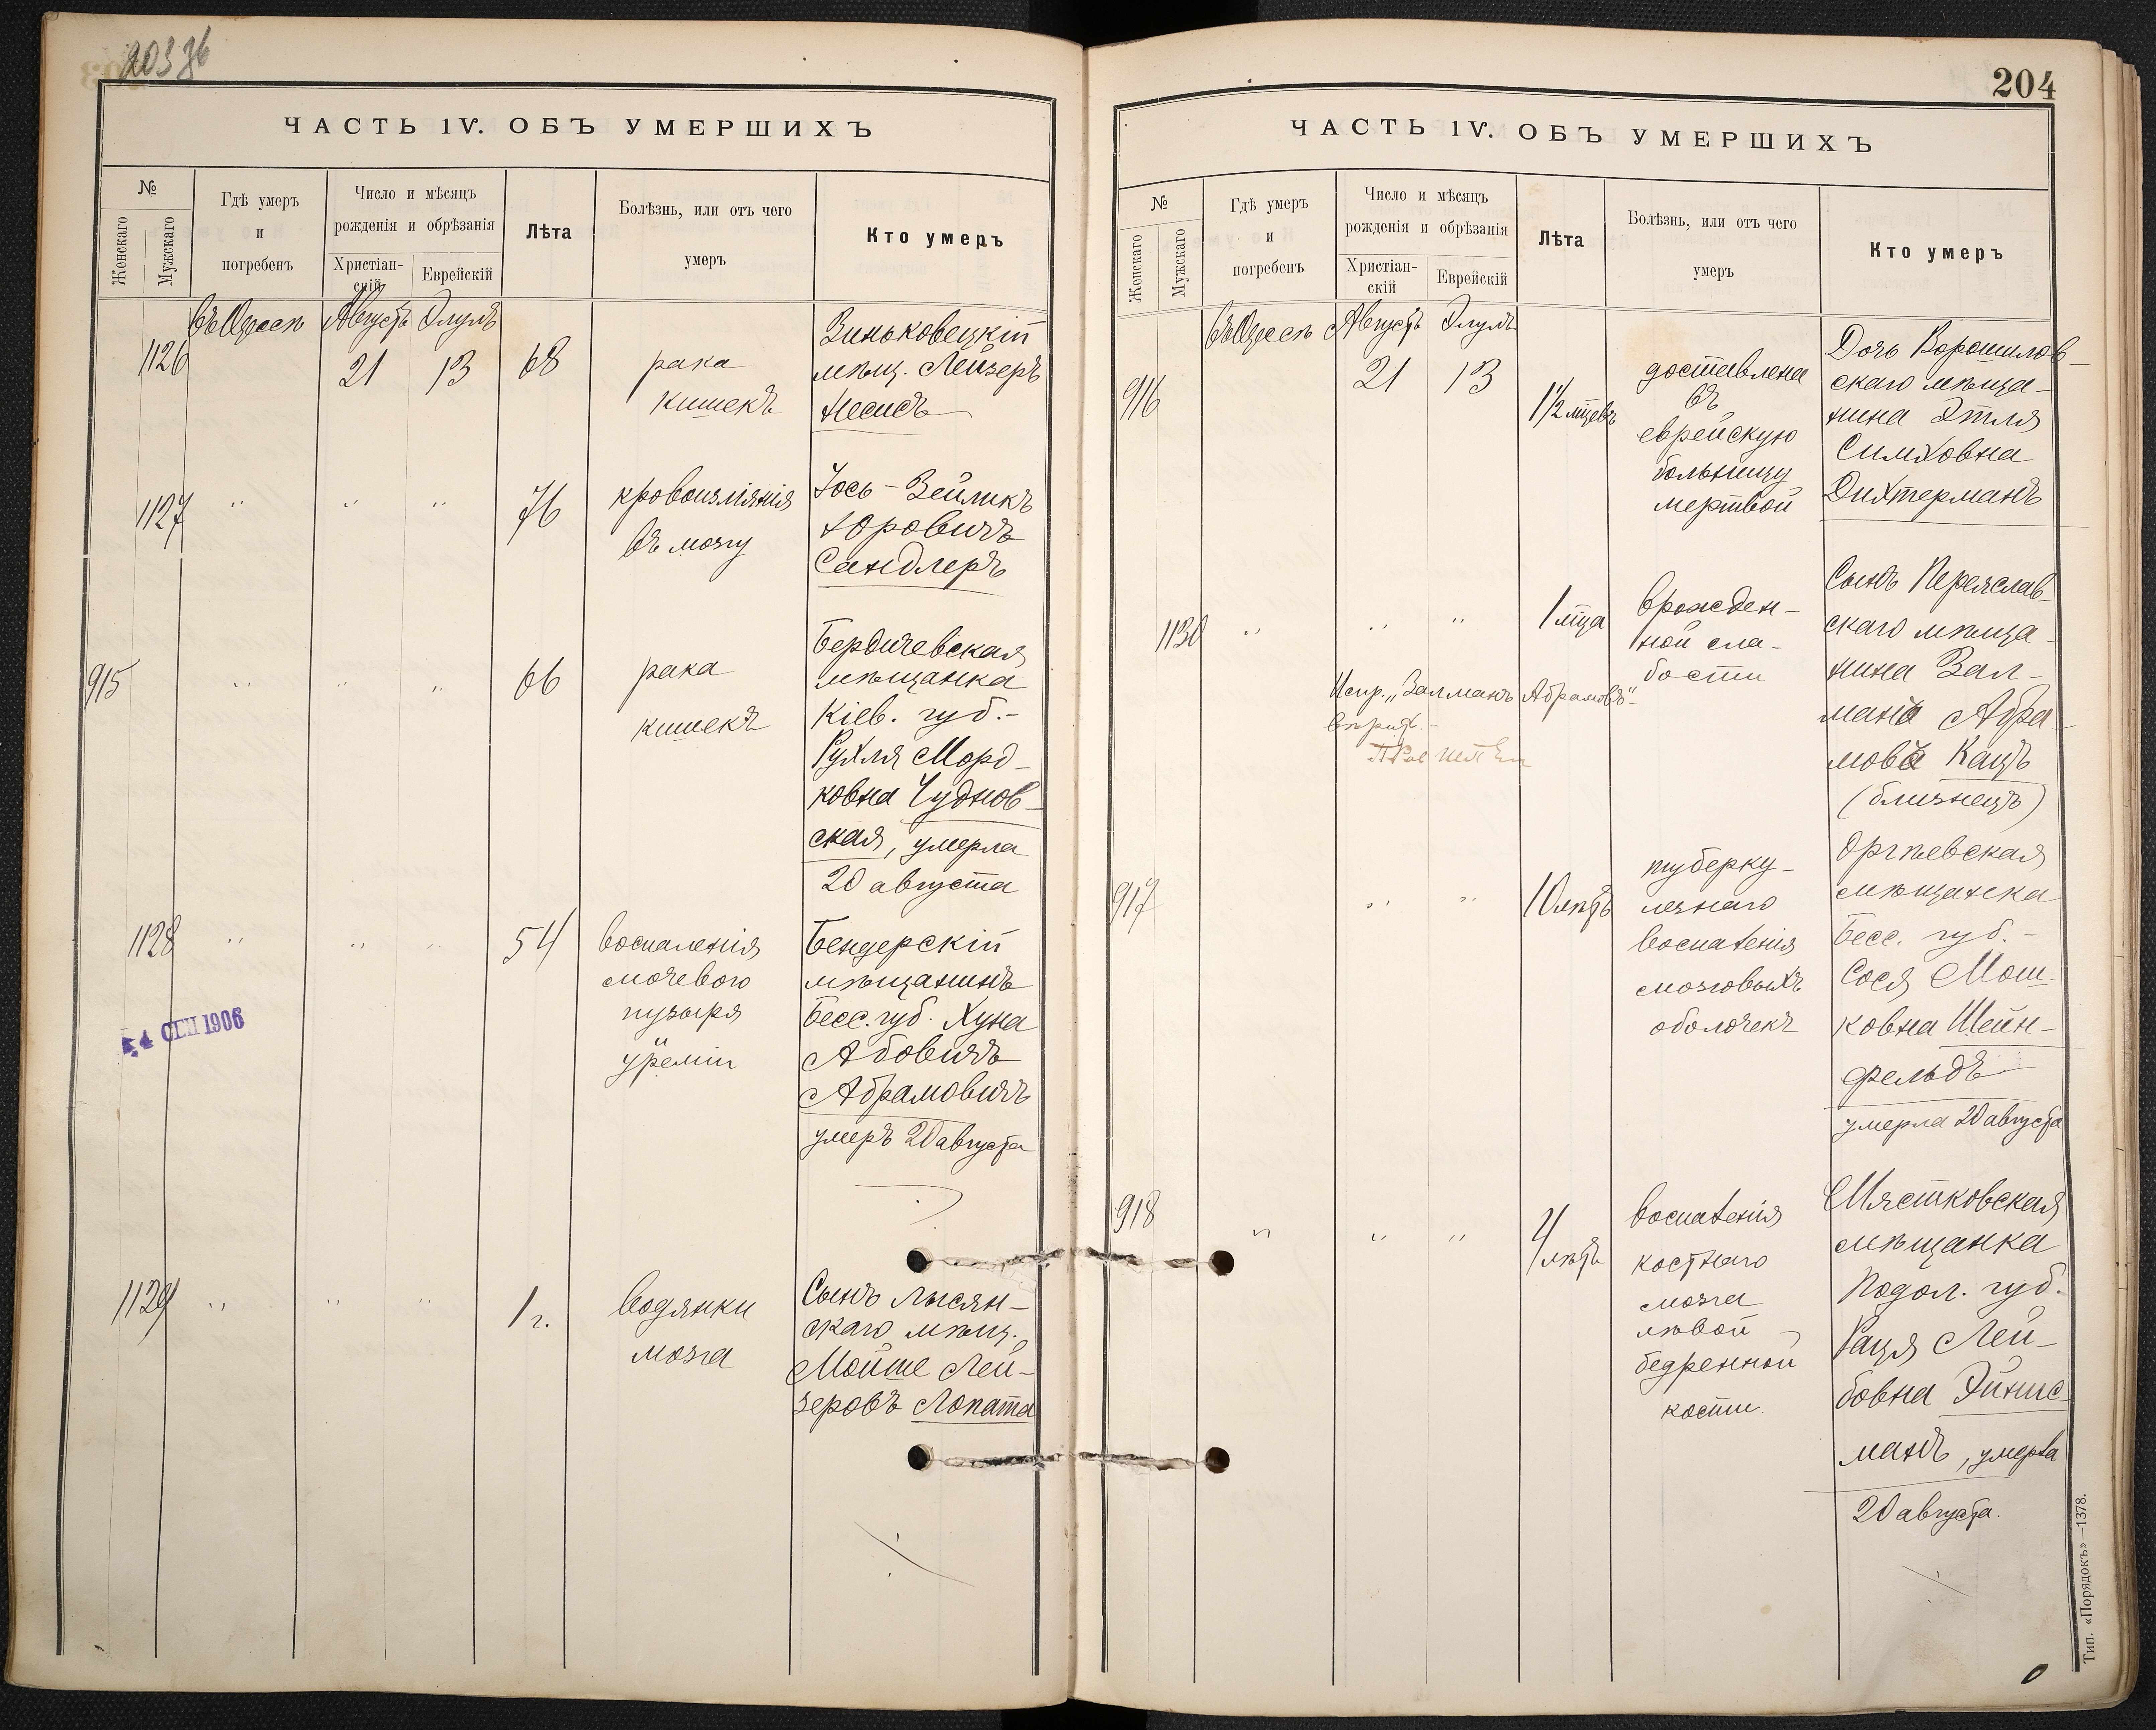 203 об
ЧАСТЬ IV. ОБЪ УМЕРШИХЪ
№
Женскаго
Мужскаго
Гдѣ умеръ
и
погребенъ
Число и мѣсяцъ
рожденія и обрѣзанія
Христіан-
скій
Еврейскій
Лѣта
Болѣзнь, или отъ чего
умеръ
Кто умеръ
въ Одессѣ Августъ Элулъ
1126
21 13
68
рака
кишекъ
Зиньковецкій
мѣщ. Лейзеръ
Несисъ
1127
" " "
76
кровоизліянія
въ мозгу
Іось-Зейликъ
Юровичъ
Сандлеръ
915
" " "
66
рака
кишекъ
Бердичевская
мѣщанка
Кіев. губ.-
Рухля Морд-
ковна Чуднов-
ская, умерла
20 августа
1128
" " "
54
воспаленія
мочевого
пузыря
уреміи
Бендерскій
мѣщанинъ
Бесс. губ. Хуна
Абовичъ
Абрамовичъ
умеръ 20 августа
4 СЕН 1906
1129
" " "
1 г.
водянки
мозга
Сынъ Лысян-
скаго мѣщ.
Мойше Лей-
зеровъ Лопата
204
ЧАСТЬ IV. ОБЪ УМЕРШИХЪ
№
Женскаго
Мужскаго
Гдѣ умеръ
и
погребенъ
Число и мѣсяцъ
рожденія и обрѣзанія
Христіан-
скій
Еврейскій
Лѣта
Болѣзнь, или отъ чего
умеръ
Кто умеръ
въ Одессѣ Августъ Элулъ
916
21 13
1½ мѣцевъ
доставлена
въ
еврейскую
больницу
мертвой
Дочь Ворошилов-
скаго мѣща-
нина Этля
Симховна
Дихтерманъ
1130
" " "
1 мѣца
врожден-
ной сла-
бости
Сынъ Переяслав-
скаго мѣща-
нина Зал-
манъ Абра-
мовъ Кацъ
(близнецъ)
Испр. „Залманъ Абрамовъ"
вѣрить.-
917
" "
10 лѣтъ
туберку-
лезнаго
воспаленія
мозговыхъ
оболочекъ
Оргѣевская
мѣщанка
Бесс. губ.-
Сося Мош-
ковна Шейн-
фельдъ
умерла 20 августа
918
" " "
4 лѣтъ
воспаленія
костнаго
мозга
лѣвой
бедренной
кости.
Мястковская
мѣщанка
Подол. губ.
Раця Лей-
бовна Эйнис-
манъ, умерла
20 августа.
Тип. «Порядокъ»—1378.